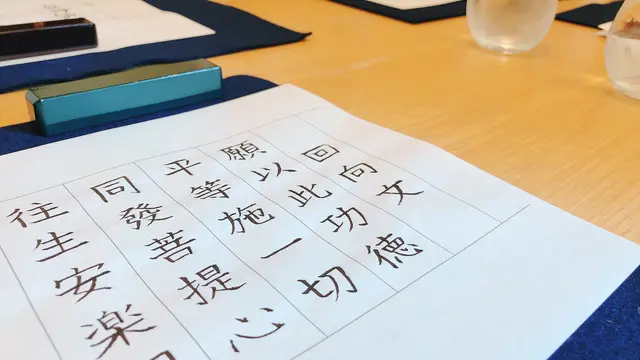 回向文
願以此功德
平等施一切
同發菩提心
往生安楽